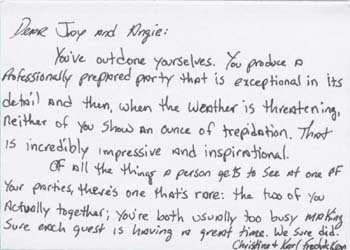 Dear Jay and Angie:
You've outdone yourselves. You produce a
professionally prepared party that is exceptional in its
detail and then, when the weather is threatening,
neither of you show an ounce of trepidation. That
is incredibly impressive and inspirational.
Of all the things a person gets to see at one of
your parties, there's one that's rare: the two of you
actually together; you're both usually too busy making
sure each guest is having a great time. We sure did.
Christine & Karl